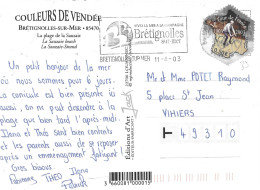 COULEURS DE VENDÉE
BRÉTIGNOLLES-SUR-MER • 85470
La plage de la Sauzaie
La Sauzaie beach
La Sauzaie-Strand
Un petit bonjour de la mer
où nous sommes pour 6 jours.
La canicule est bien présente ici
aussi, on ne peut descendre à
la plage que tard dans l'après-midi.
Ilona et Théo sont bien contents
et les parents aussi de se reposer
après un emménagement
Gros bisous
Théo Ilona
Editions d'Art
3 660081 000015
Brétignolles
BRETIGNOLLES-SUR-MER
11-8-03
M. et Mme POTET Raymond
5 place St Jean
VIHIERS
49310